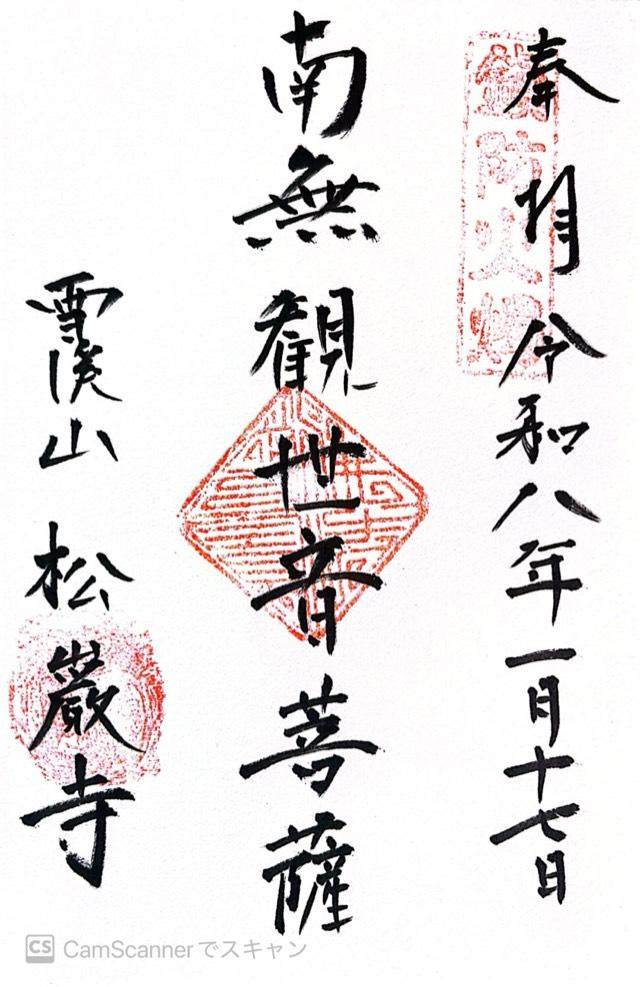 奉拝 令和八年一月十七日
鎮防火燭
南無観世音菩薩
雲渓山 松巌寺
CS CamScannerでスキャン